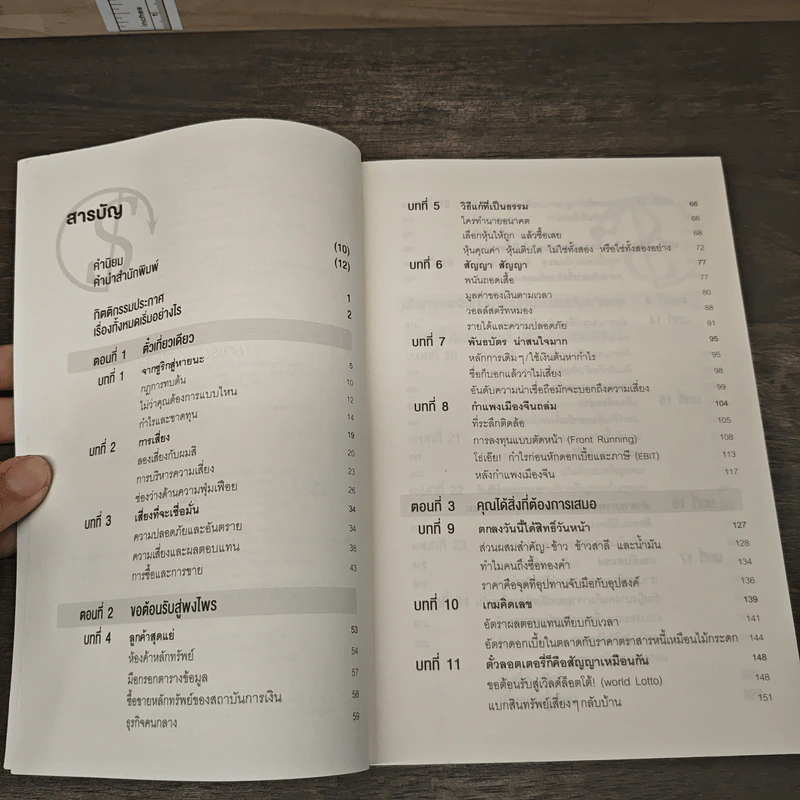 inches
สารบัญ
คำนิยม (10)
คำนำสำนักพิมพ์ (12)
กิตติกรรมประกาศ 1
เรื่องทั้งหมดเริ่มอย่างไร 2
ตอนที่ 1 ตั๋วเที่ยวเดียว
บทที่ 1 จากซูริกสู่หายนะ 5
กฎการทบต้น 10
ไม่ว่าคุณต้องการแบบไหน 12
กำไรและขาดทุน 14
บทที่ 2 การเสี่ยง 19
ลองเสี่ยงกับผมสิ 20
การบริหารความเสี่ยง 23
ช่องว่างด้านความฟุ่มเฟือย 26
บทที่ 3 เสี่ยงที่จะเชื่อมั่น 34
ความปลอดภัยและอันตราย 34
ความเสี่ยงและผลตอบแทน 38
การซื้อและการขาย 43
ตอนที่ 2 ขอต้อนรับสู่พงไพร
บทที่ 4 ลูกค้าสุดแย่ 53
ห้องค้าหลักทรัพย์ 54
มือกรอกตารางข้อมูล 57
ซื้อขายหลักทรัพย์ของสถาบันการเงิน 58
ธุรกิจคนกลาง 59
บทที่ 5 วิธีแก้ที่เป็นธรรม 66
ใครทำนายอนาคต 66
เลือกหุ้นให้ถูก แล้วซื้อเลย 68
หุ้นคุณค่า หุ้นเติบโต ไม่ใช่ทั้งสอง หรือใช่ทั้งสองอย่าง 72
บทที่ 6 สัญญา สัญญา 77
พนันถอดเสื้อ 77
มูลค่าของเงินตามเวลา 80
วอลล์สตรีทหมอง 88
รายได้และความปลอดภัย 91
บทที่ 7 พันธบัตร น่าสนใจมาก 95
หลักการเดิมๆ/ใช้เงินต้นหากำไร 95
ชื่อก็บอกแล้วว่าไม่เสี่ยง 98
อันดับความน่าเชื่อถือมักจะบอกถึงความเสี่ยง 99
บทที่ 8 กำแพงเมืองจีนถล่ม 104
ที่ระลึกติดล้อ 105
การลงทุนแบบตัดหน้า (Front Running) 108
โธ่เอ๊ย! กำไรก่อนหักดอกเบี้ยและภาษี (EBIT) 113
หลังกำแพงเมืองจีน 117
ตอนที่ 3 คุณได้สิ่งที่ต้องการเสมอ
บทที่ 9 ตกลงวันนี้ได้สิทธิ์วันหน้า 127
ส่วนผสมสำคัญ-ข้าว ข้าวสาลี และน้ำมัน 128
ทำไมคนถึงซื้อทองคำ 134
ราคาคือจุดที่อุปทานจับมือกับอุปสงค์ 136
บทที่ 10 เกมคิดเลข 139
อัตราผลตอบแทนเทียบกับเวลา 141
อัตราดอกเบี้ยในตลาดกับราคาตราสารหนี้เหมือนไม้กระดก 144
บทที่ 11 ตั๋วลอตเตอรี่ก็คือสัญญาเหมือนกัน 148
ขอต้อนรับสู่เวิลด์ล็อตโต้! (world Lotto) 148
แบกสินทรัพย์เสี่ยงๆกลับบ้าน 151